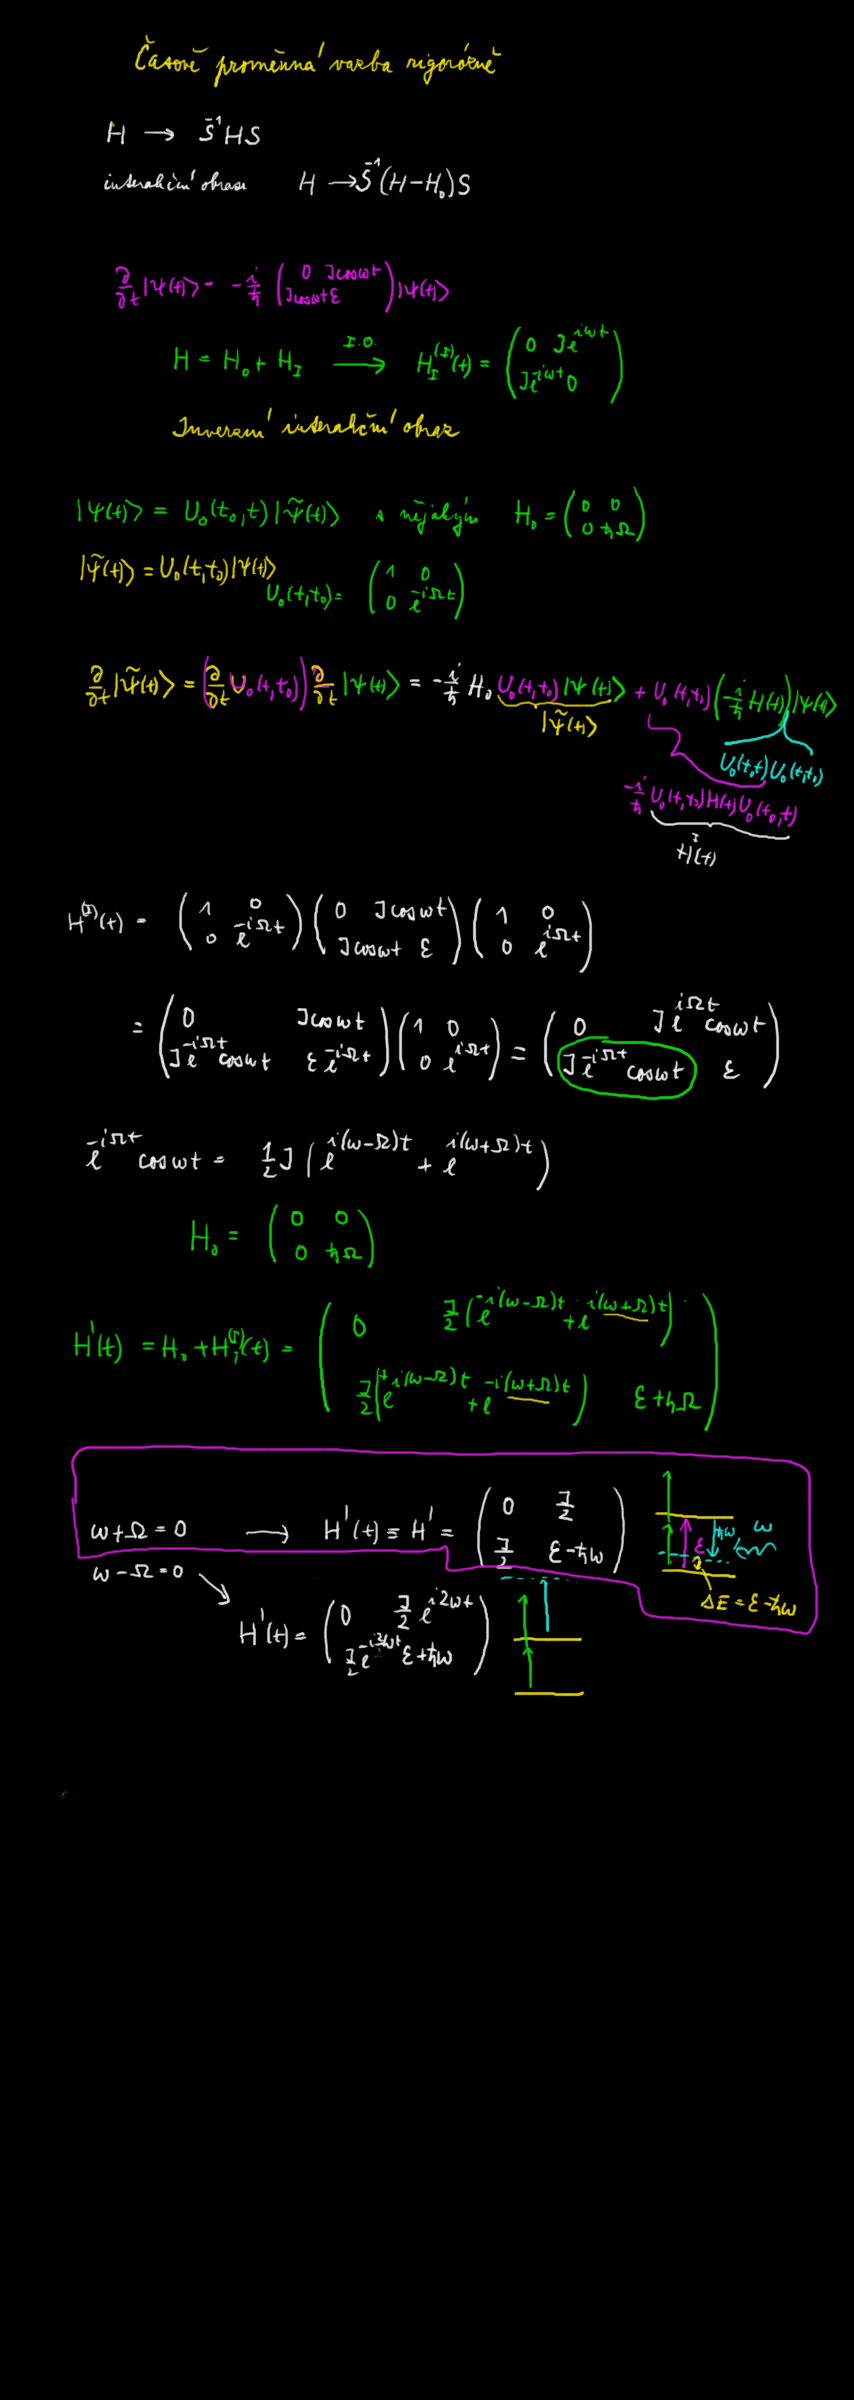 Časově proměnná vazba rigorózně
H → S⁻¹HS
interakční obraz H → S⁻¹(H−H₀)S
∂/∂t |Ψ(t)⟩ = −i/ħ (0 Jcosωt; Jcosωt ε) |Ψ(t)⟩
H = H₀ + H_I —I.O.→ H_I^(I)(t) = (0 Je^{iωt}; Je^{-iωt} 0)
Inverzní interakční obraz
|Ψ(t)⟩ = U₀(t₀,t)|Ψ̃(t)⟩ s nějakým H₀ = (0 0; 0 ħΩ)
|Ψ̃(t)⟩ = U₀(t,t₀)|Ψ(t)⟩
U₀(t,t₀) = (1 0; 0 e^{-iΩt})
∂/∂t |Ψ̃(t)⟩ = (∂/∂t U₀(t,t₀)) ∂/∂t |Ψ(t)⟩ = −i/ħ H₀ U₀(t,t₀)|Ψ(t)⟩ + U₀(t,t₀)(−i/ħ H(t))|Ψ(t)⟩
|Ψ̃(t)⟩
U₀(t₀,t)U₀(t,t₀)
−i/ħ U₀(t,t₀)H(t)U₀(t₀,t)
H^I(t)
H^(I)(t) = (1 0; 0 e^{-iΩt}) (0 Jcosωt; Jcosωt ε) (1 0; 0 e^{iΩt})
= (0 Jcosωt; Je^{-iΩt}cosωt εe^{-iΩt}) (1 0; 0 e^{iΩt}) = (0 Je^{iΩt}cosωt; Je^{-iΩt}cosωt ε)
e^{-iΩt}cosωt = ½J(e^{i(ω−Ω)t} + e^{i(ω+Ω)t})
H₀ = (0 0; 0 ħΩ)
H'(t) = H₀ + H^(I)(t) = (0 J/2(e^{-i(ω−Ω)t} + e^{i(ω+Ω)t}); J/2(e^{+i(ω−Ω)t} + e^{-i(ω+Ω)t}) ε+ħΩ)
ω+Ω=0 → H'(t) ≡ H' = (0 J/2; J/2 ε−ħω)
ε ħω, ω
ΔE = ε−ħω
ω−Ω=0
H'(t) = (0 J/2 e^{i2ωt}; J/2 e^{-i2ωt} ε+ħω)